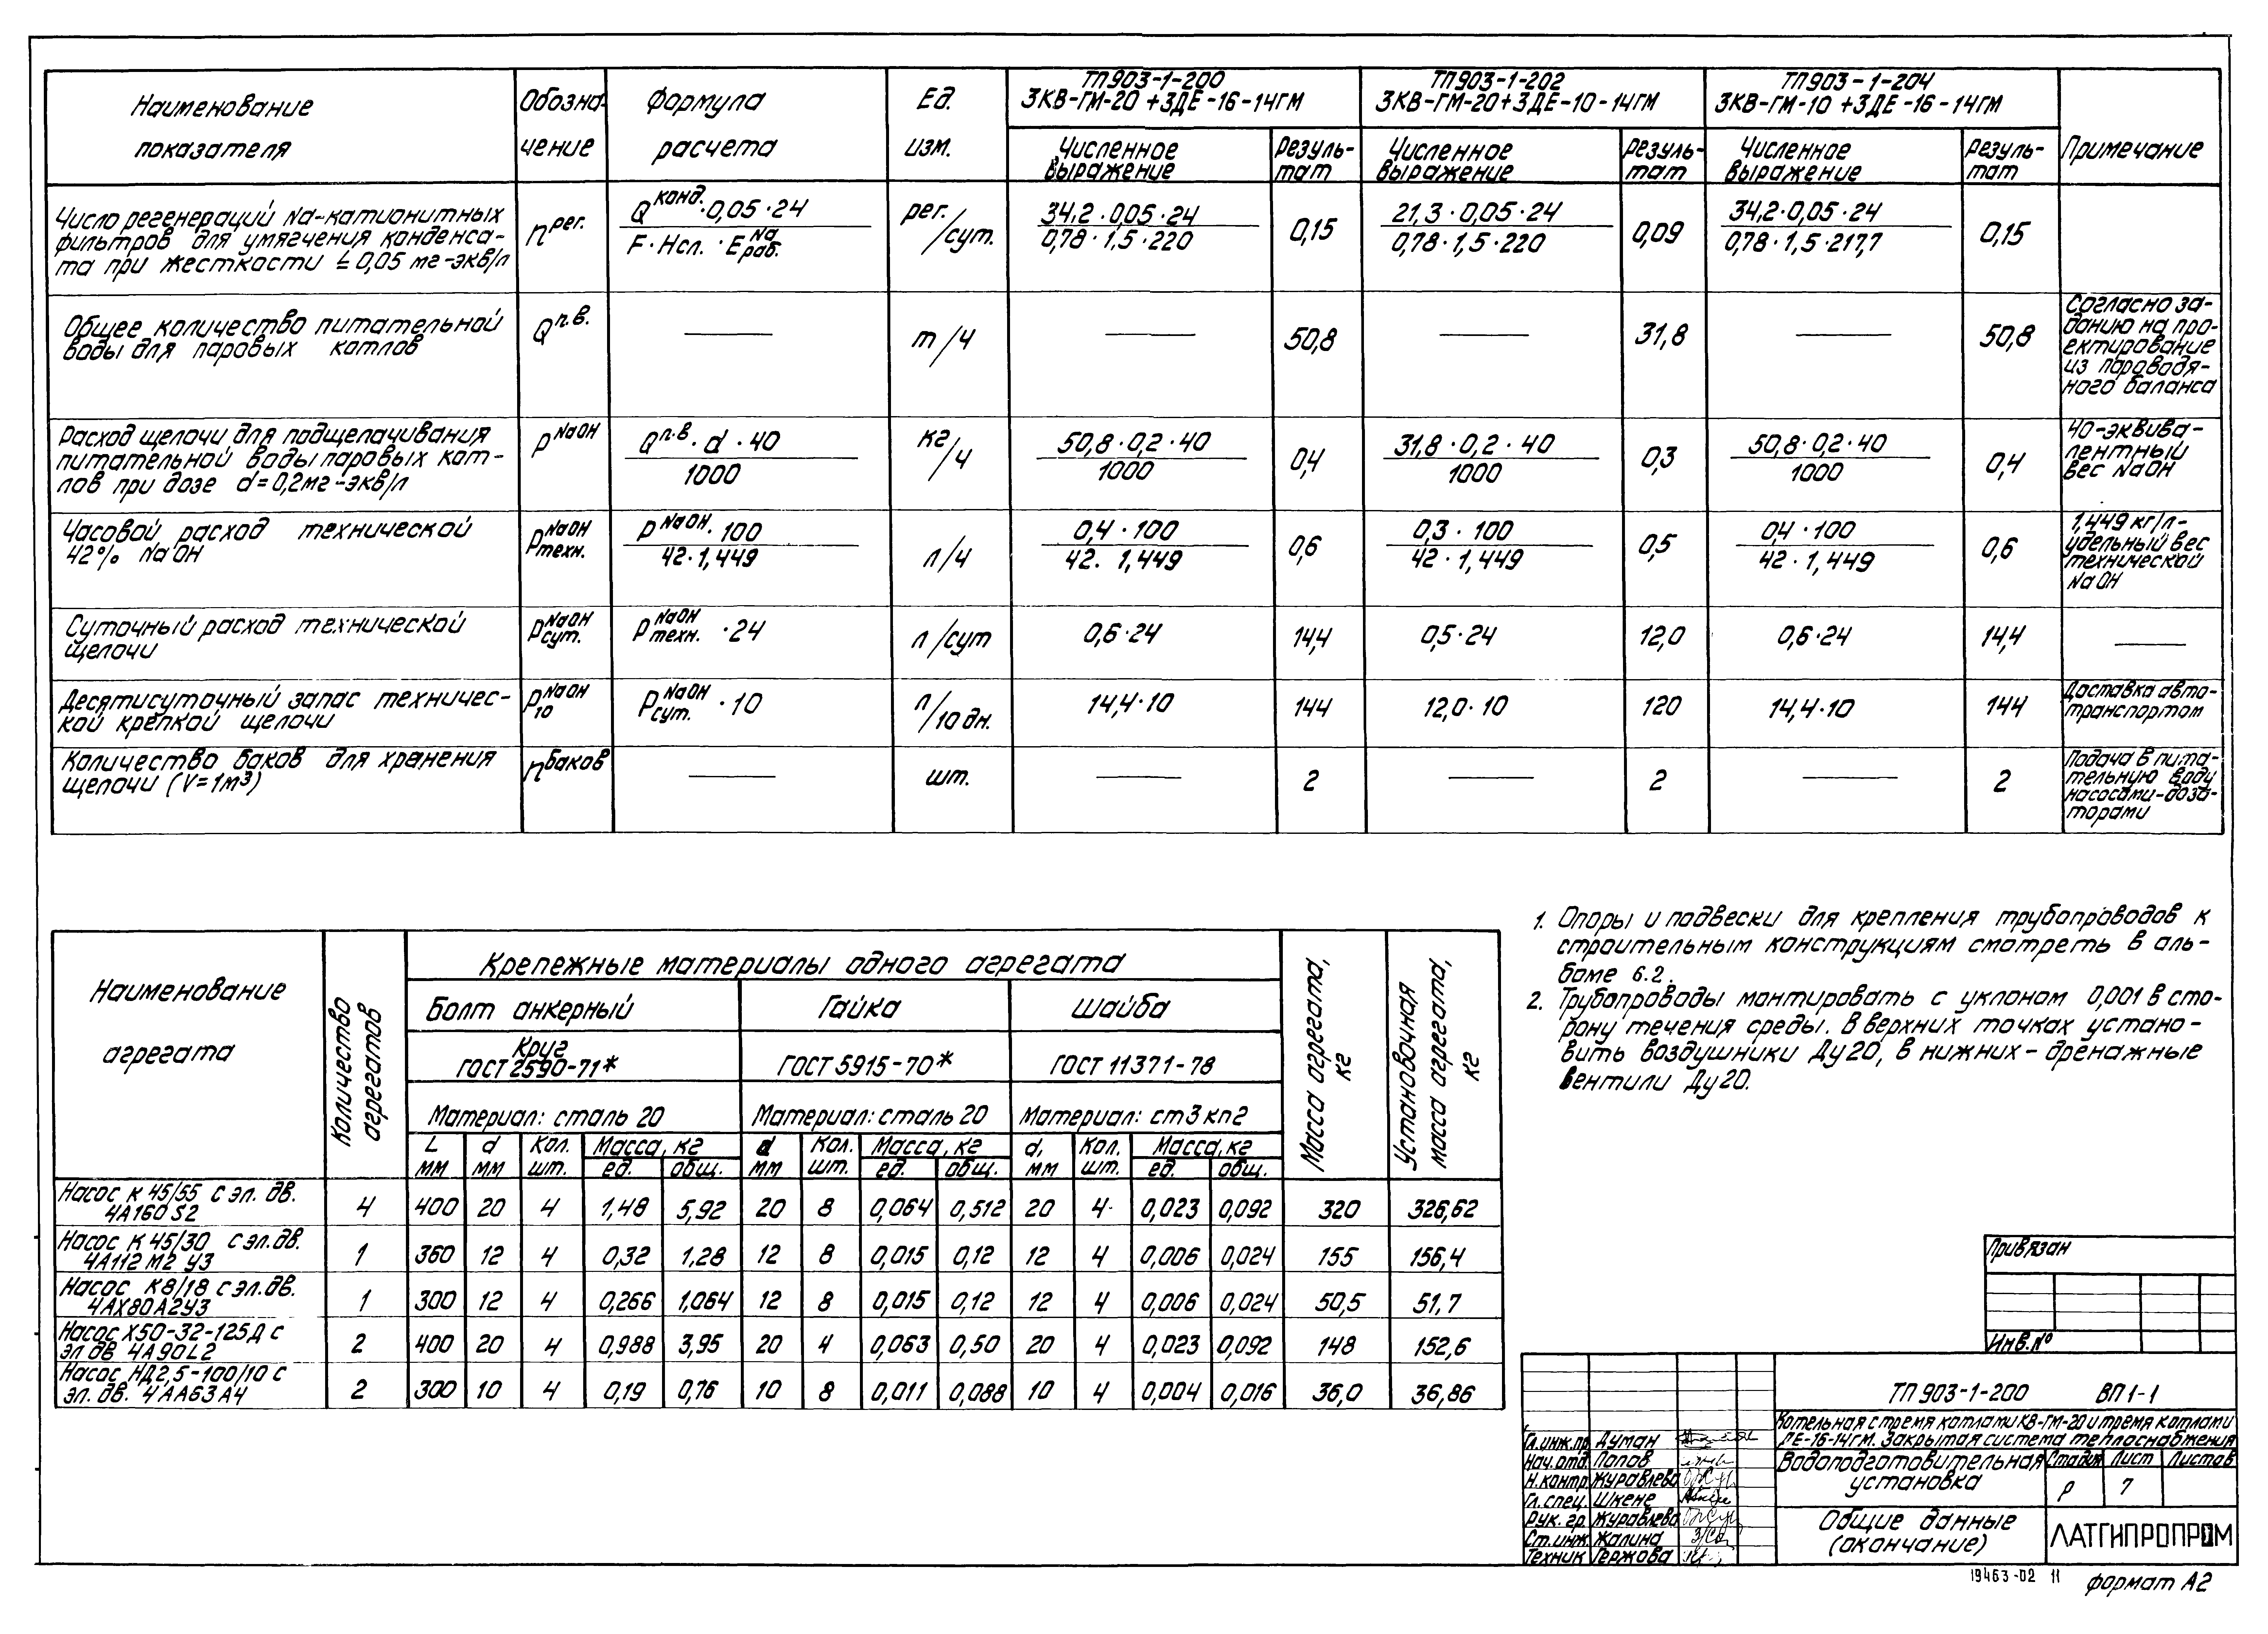 Наименование показателя
Обозна-чение
Формула расчета
Ед. изм.
ТП 903-1-200
3КВ-ГМ-20+3ДЕ-16-14ГМ
ТП 903-1-202
3КВ-ГМ-20+3ДЕ-10-14ГМ
ТП 903-1-204
3КВ-ГМ-10+3ДЕ-16-14ГМ
Примечание
Численное выражение
Резуль-тат
Численное выражение
Резуль-тат
Численное выражение
Резуль-тат
Число регенераций Na-катионитных
фильтров для умягчения конденса-
та при жесткости ≤ 0,05 мг-экв/л
n рег.
Q конд. · 0,05 · 24
F · Hсл. · E Na раб.
рег./сут.
34,2 · 0,05 · 24
0,78 · 1,5 · 220
0,15
21,3 · 0,05 · 24
0,78 · 1,5 · 220
0,09
34,2 · 0,05 · 24
0,78 · 1,5 · 217,7
0,15
Общее количество питательной
воды для паровых котлов
Q п.в.
т/ч
50,8
31,8
50,8
Согласно за-
данию на про-
ектирование
из пароводя-
ного баланса
Расход щелочи для подщелачивания
питательной воды паровых кот-
лов при дозе d = 0,2 мг-экв/л
P NaOH
Q п.в. · d · 40
1000
кг/ч
50,8 · 0,2 · 40
1000
0,4
31,8 · 0,2 · 40
1000
0,3
50,8 · 0,2 · 40
1000
0,4
40-эквива-
лентный
вес NaOH
Часовой расход технической
42% NaOH
P NaOH техн.
P NaOH · 100
42 · 1,449
л/ч
0,4 · 100
42 · 1,449
0,6
0,3 · 100
42 · 1,449
0,5
0,4 · 100
42 · 1,449
0,6
1,449 кг/л-
удельный вес
технической
NaOH
Суточный расход технической
щелочи
P NaOH сут.
P NaOH техн. · 24
л/сут
0,6 · 24
14,4
0,5 · 24
12,0
0,6 · 24
14,4
Десятисуточный запас техничес-
кой крепкой щелочи
P NaOH 10
P NaOH сут. · 10
л/10 дн.
14,4 · 10
144
12,0 · 10
120
14,4 · 10
144
Доставка авто-
транспортом
Количество баков для хранения
щелочи (V = 1м³)
n баков
шт.
2
2
2
Подача в пита-
тельную воду
насосами-доза-
торами
Наименование агрегата
Количество агрегатов
Крепежные материалы одного агрегата
Масса агрегата, кг
Установочная масса агрегата, кг
Болт анкерный
Гайка
Шайба
Круг
ГОСТ 2590-71*
ГОСТ 5915-70*
ГОСТ 11371-78
Материал: сталь 20
Материал: сталь 20
Материал: ст3 кп2
L мм
d мм
Кол. шт.
Масса, кг
ед. общ.
d мм
Кол. шт.
Масса, кг
ед. общ.
d, мм
Кол. шт.
Масса, кг
ед. общ.
Насос К 45/55 с эл. дв.
4А160S2
4 400 20 4 1,48 5,92 20 8 0,064 0,512 20 4 0,023 0,092 320 326,62
Насос К 45/30 с эл. дв.
4А112 М2 У3
1 360 12 4 0,32 1,28 12 8 0,015 0,12 12 4 0,006 0,024 155 156,4
Насос К8/18 с эл. дв.
4АХ80А2У3
1 300 12 4 0,266 1,064 12 8 0,015 0,12 12 4 0,006 0,024 50,5 51,7
Насос Х50-32-125Д с
эл дв 4А90L2
2 400 20 4 0,988 3,95 20 4 0,063 0,50 20 4 0,023 0,092 148 152,6
Насос НД2,5-100/10 с
эл. дв. 4АА63А4
2 300 10 4 0,19 0,76 10 8 0,011 0,088 10 4 0,004 0,016 36,0 36,86
1. Опоры и подвески для крепления трубопроводов к
строительным конструкциям смотреть в аль-
боме 6.2.
2. Трубопроводы монтировать с уклоном 0,001 в сто-
рону течения среды. В верхних точках устано-
вить воздушники Ду20, в нижних - дренажные
вентили Ду20.
Привязан
Инв.№
ТП 903-1-200 ВП1-1
Котельная с тремя котлами КВ-ГМ-20 и тремя котлами
ДЕ-16-14ГМ. Закрытая система теплоснабжения
Гл.инж.пр. Думан
Нач.отд. Попов
Н.контр. Журавлева
Гл.спец. Шкене
Рук. гр. Журавлева
Ст.инж. Жалина
Техник Гержова
Водоподготовительная
установка
Стадия Лист Листов
Р 7
Общие данные
(окончание)
ЛАТГИПРОПРОМ
19463-02 11
формат А2